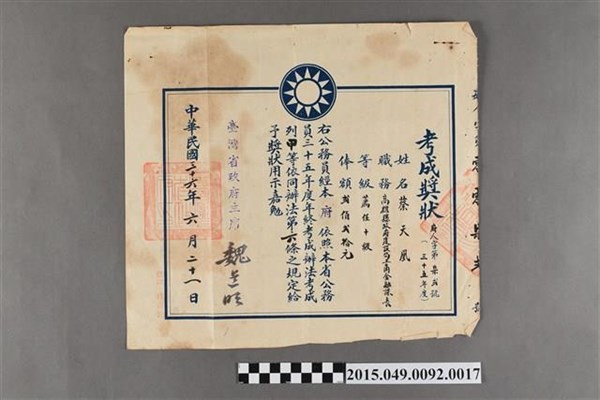 考成獎狀
府人字第柒弍號
(三十五年度)
姓名 葉天鳳
職務 高雄縣政府建設局工商金融課長
等級 薦任十級
俸額 叁佰弍拾元
右公務員經本府依照本省公務
員三十五年度年終考成辦法考成
列甲等依同辦法第六條之規定給
予獎狀用示嘉勉
臺灣省政府主席
魏道明
中華民國三十六年六月二十一日
2015.049.0092.0017